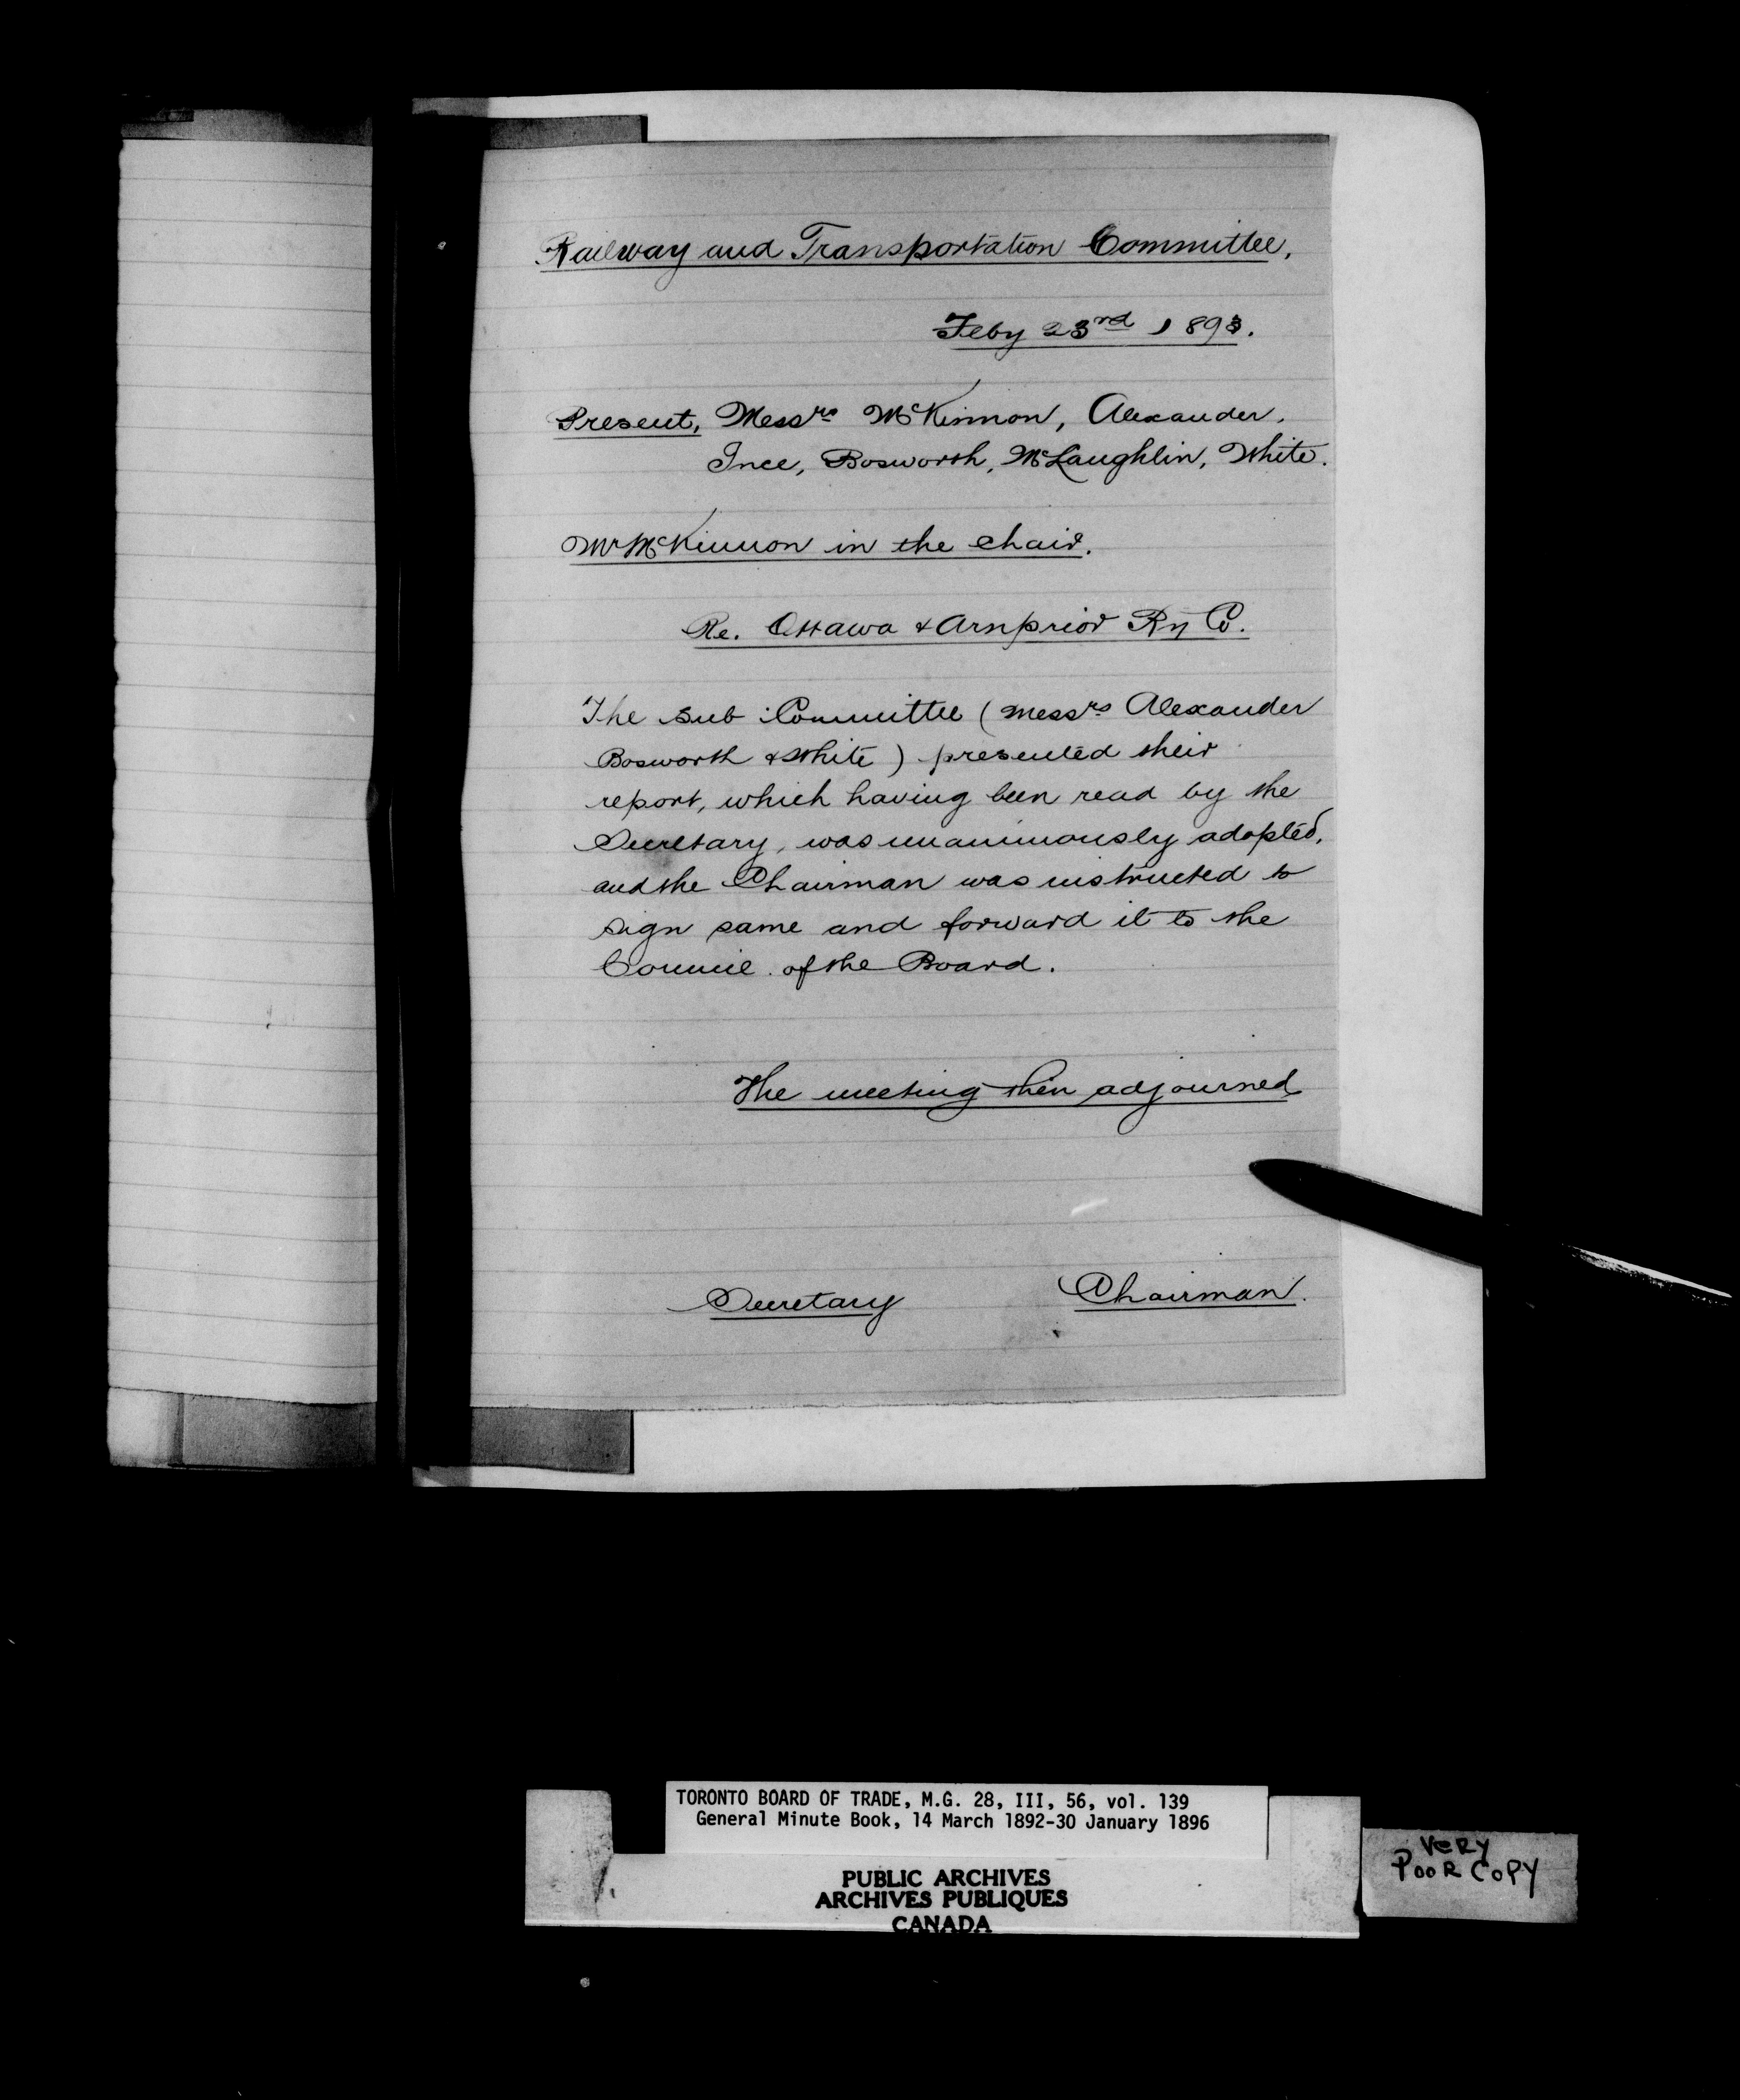 Railway and Transportation Committee,
Feby 23rd 1893.
Present, Messrs McKinnon, Alexander,
Ince, Bosworth, McLaughlin, White.
Mr McKinnon in the Chair.
Re. Ottawa & Arnprior Ry Co.
The Sub Committee (Messrs Alexander
Bosworth & White) presented their
report, which having been read by the
Secretary, was unanimously adopted,
and the Chairman was instructed to
sign same and forward it to the
Council of the Board.
The meeting then adjourned
Secretary Chairman.
TORONTO BOARD OF TRADE, M.G. 28, III, 56, vol. 139
General Minute Book, 14 March 1892-30 January 1896
PUBLIC ARCHIVES
ARCHIVES PUBLIQUES
CANADA
VERY
POOR COPY